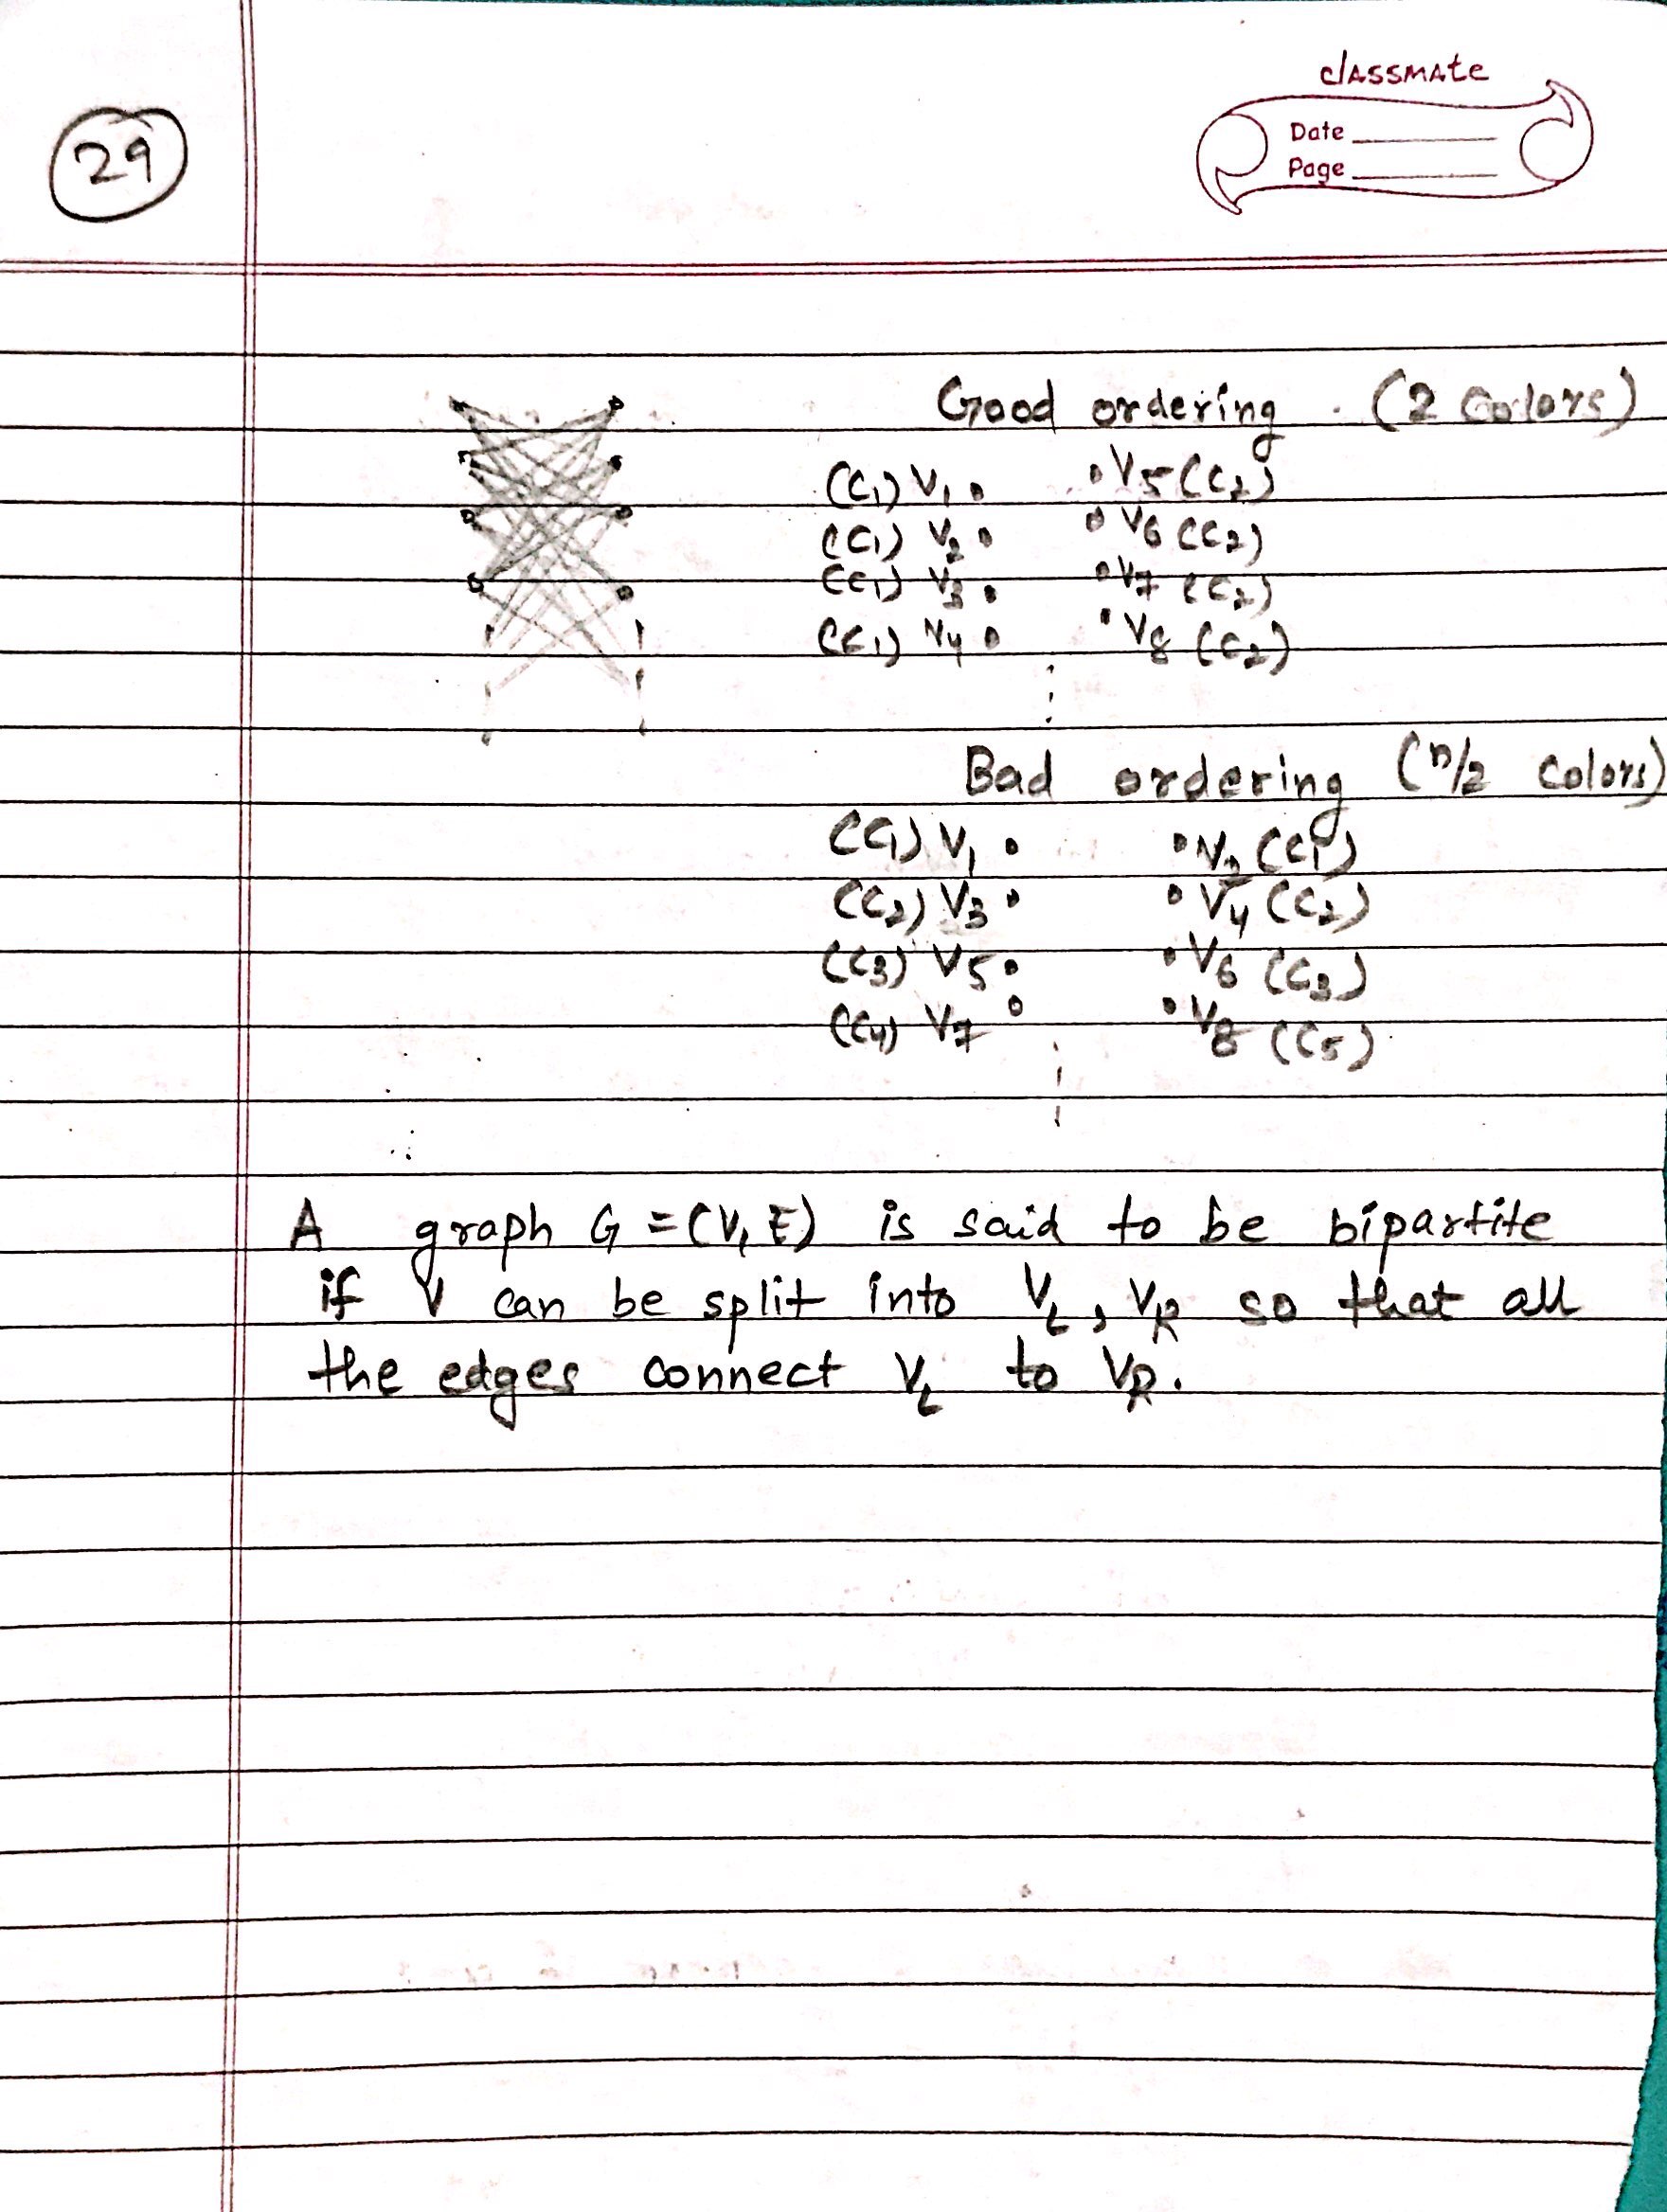 classmate
Date
Page
29
Good ordering (2 Colors)
(C1) V1 V5 (C2)
(C1) V2 V6 (C2)
(C1) V3 V7 (C2)
(C1) V4 V8 (C2)
Bad ordering (n/2 colors)
(C1) V1 V2 (C1)
(C2) V3 V4 (C2)
(C3) V5 V6 (C3)
(C4) V7 V8 (C5)
A graph G = (V, E) is said to be bipartite
if V can be split into VL, VR so that all
the edges connect VL to VR.